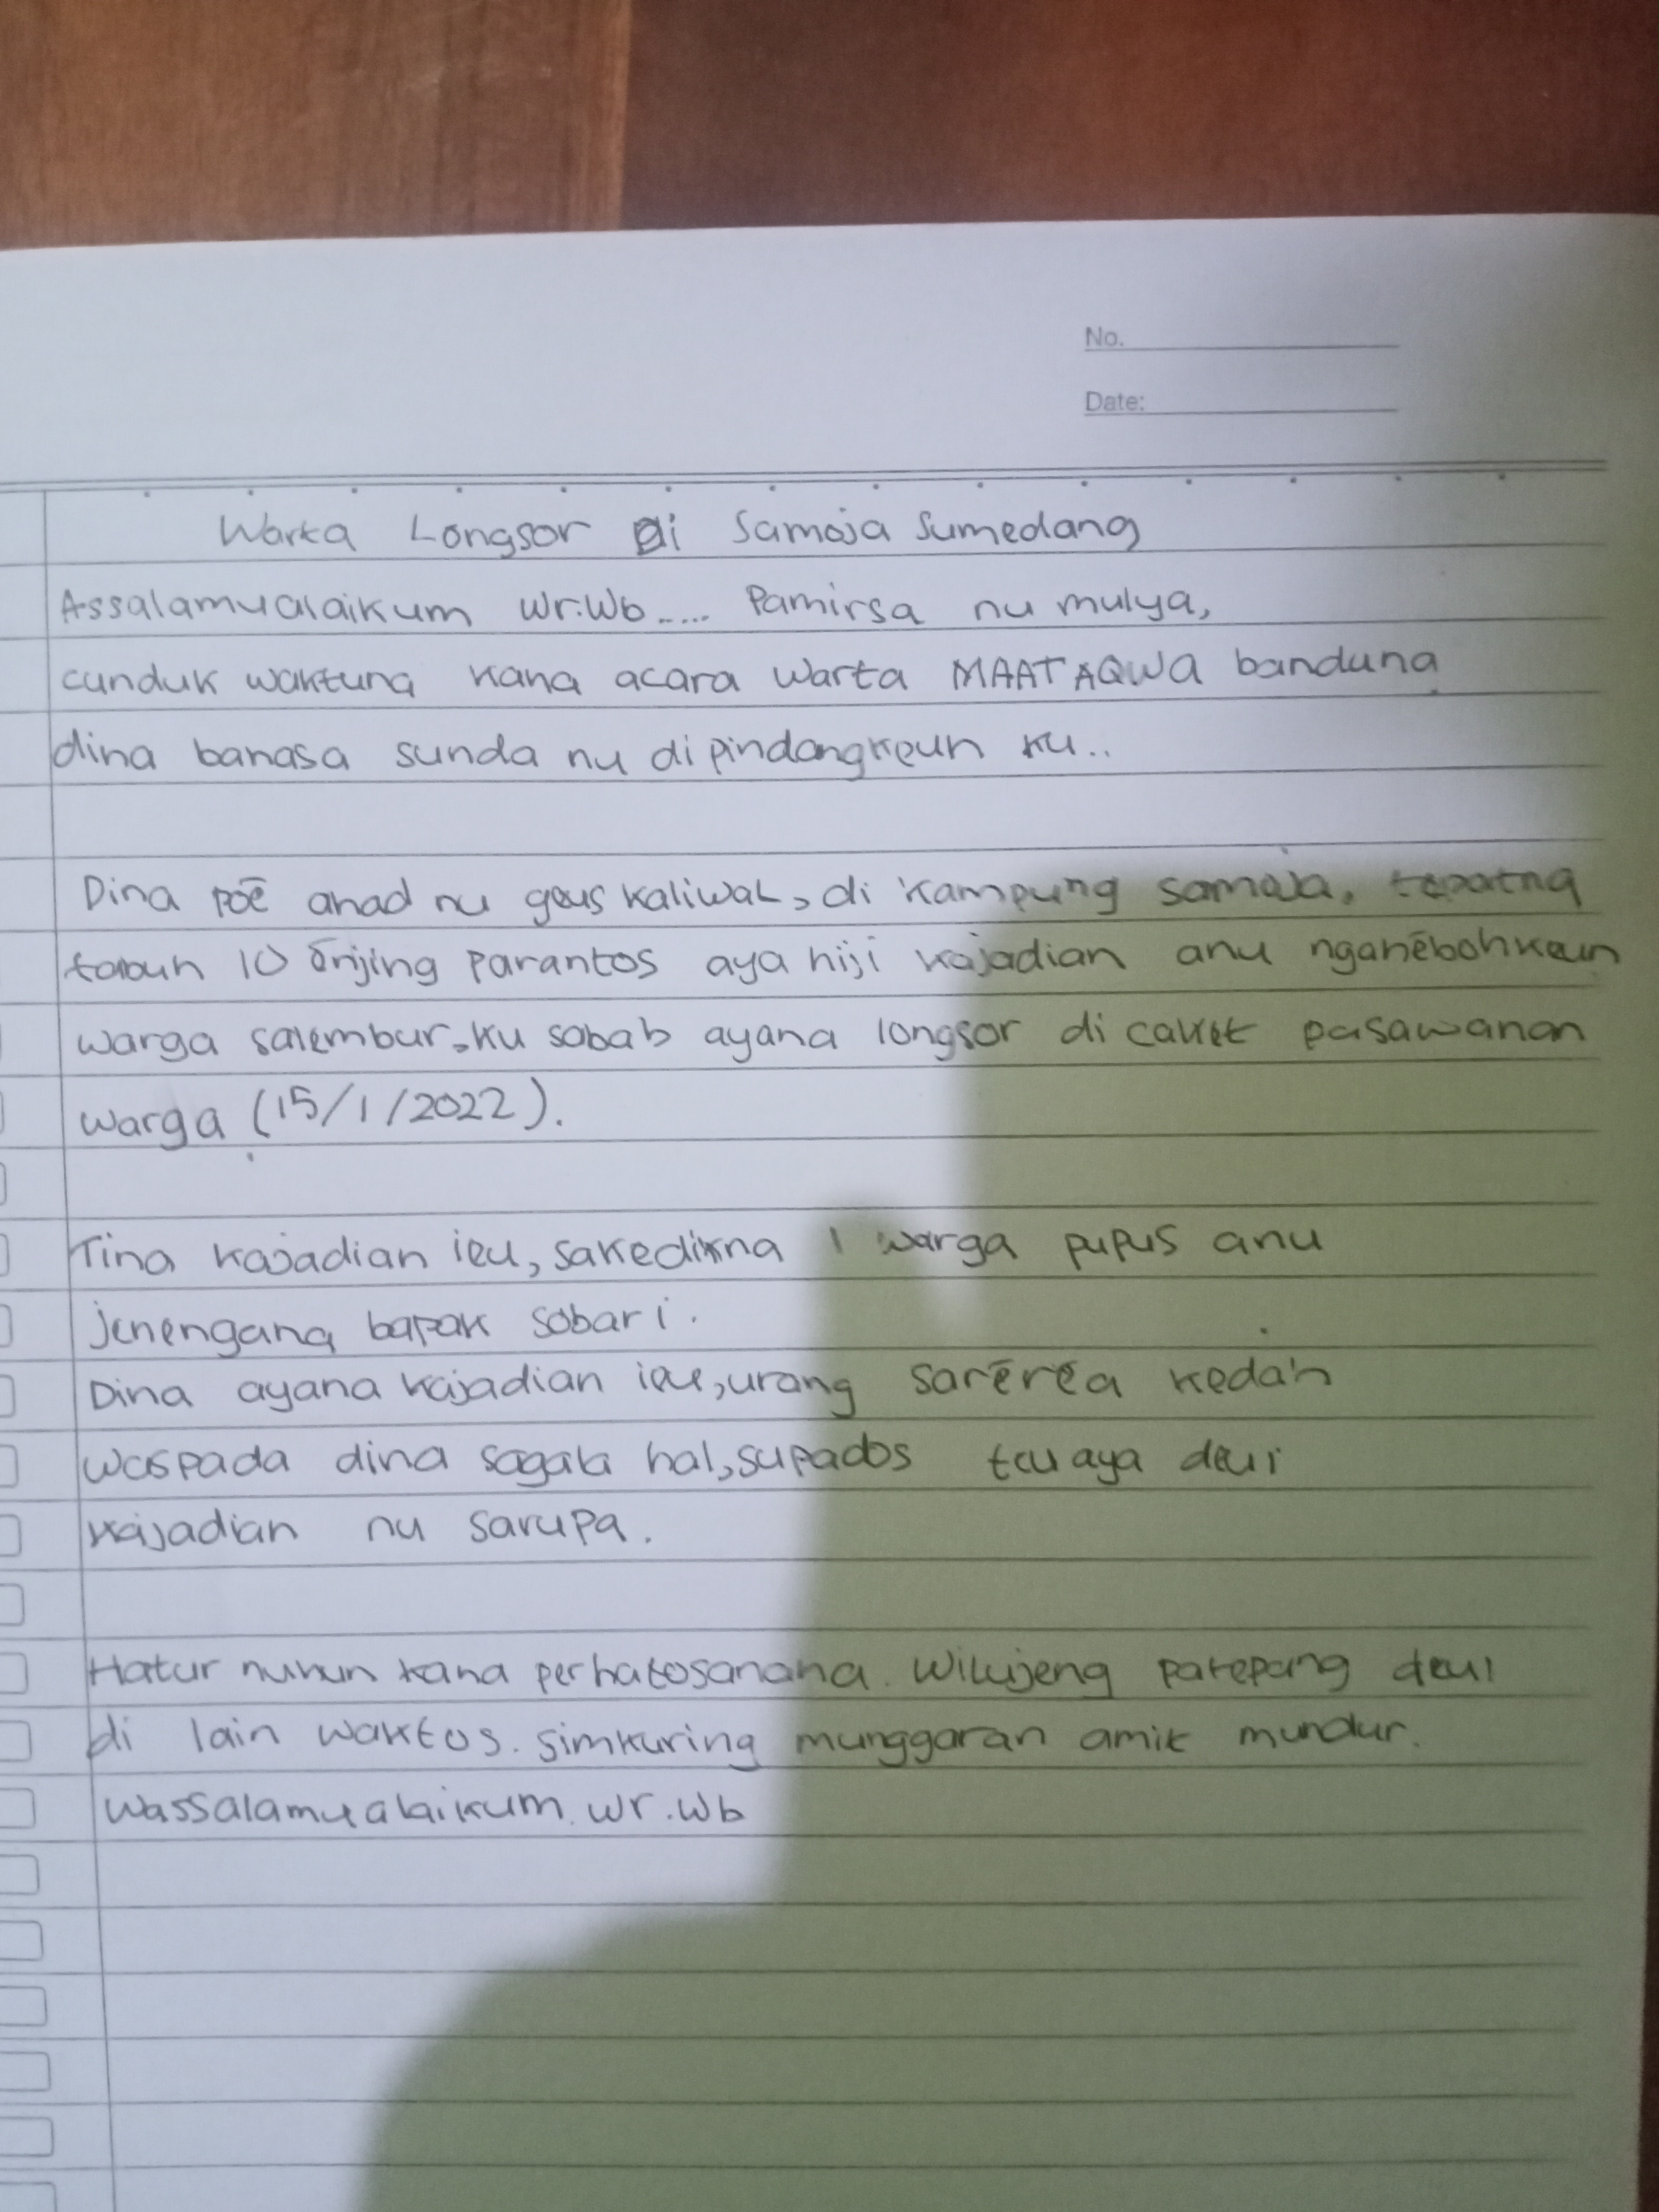 No.
Date:
Warta Longsor Di Samoja Sumedang
Assalamualaikum Wr.Wb..... Pamirsa nu mulya,
cunduk waktuna kana acara Warta MAATAQWA bandung
dina banasa sunda nu dipindangkeun ku..
Dina poē ahad nu geus kaliwat, di kampung samoja, tepatna
tabuh 10 ēnjing parantos aya hiji kajadian anu nganēbohkeun
warga salembur, ku sabab ayana longsor di caket pasawahan
warga (15/1/2022).
Tina kajadian ieu, sakedikna 1 warga pupus anu
jenengana bapak sobari.
Dina ayana kajadian ieu, urang sarērēa kedah
waspada dina sagala hal, supados teu aya deui
kajadian nu sarupa.
Hatur nuhun kana perhatosanana. Wilujeng patepang deui
di lain waktos. simkuring munggaran amit mundur.
Wassalamualaikum. wr.wb